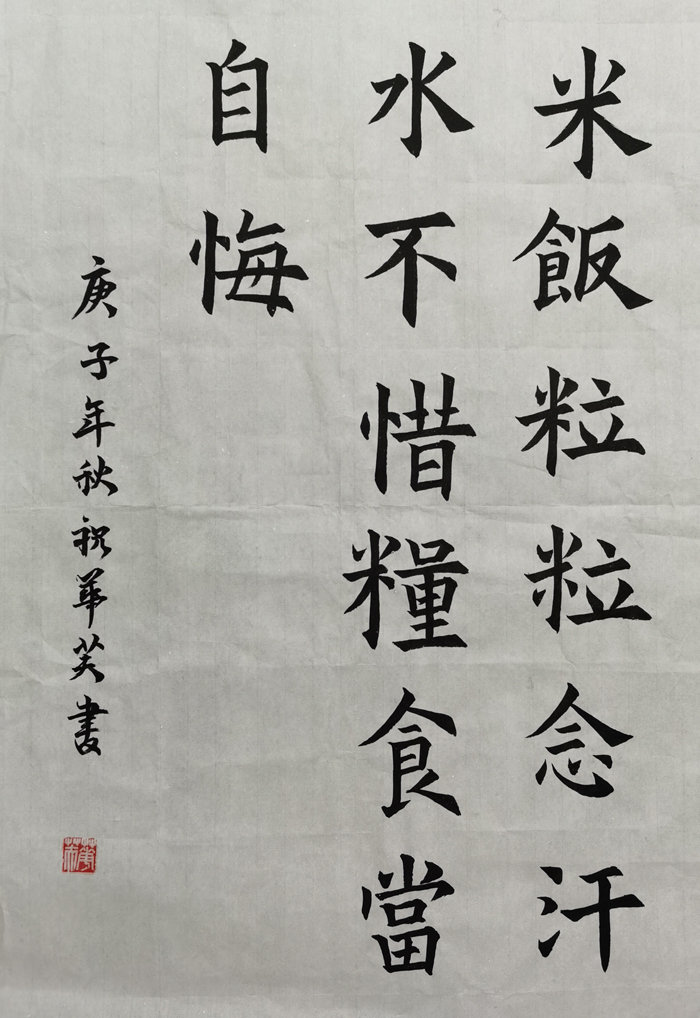 米飯粒粒念汗
水不惜糧食當
自悔
庚子年秋祝華英書